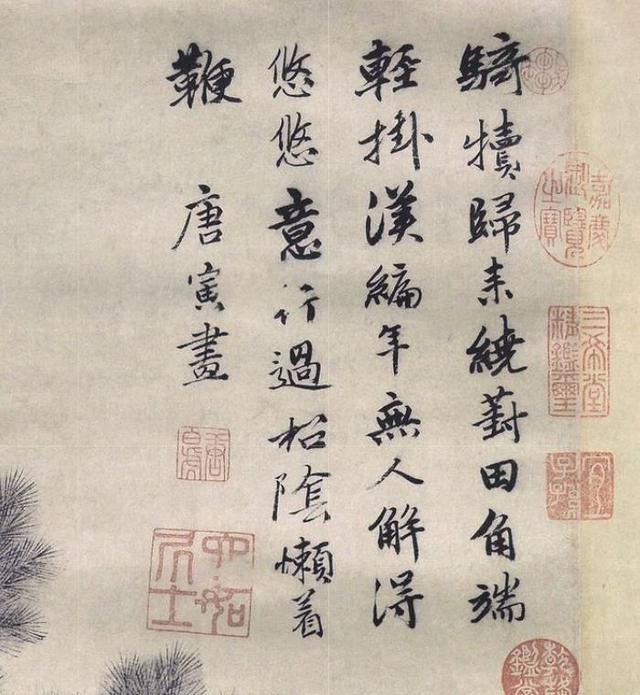 騎犢歸來繞葑田角端
輕掛漢編年無人解得
悠悠意行過松陰懶着
鞭
唐寅畫
六如居士
嘉慶御覽之寶
三希堂精鑑璽
宜子孫